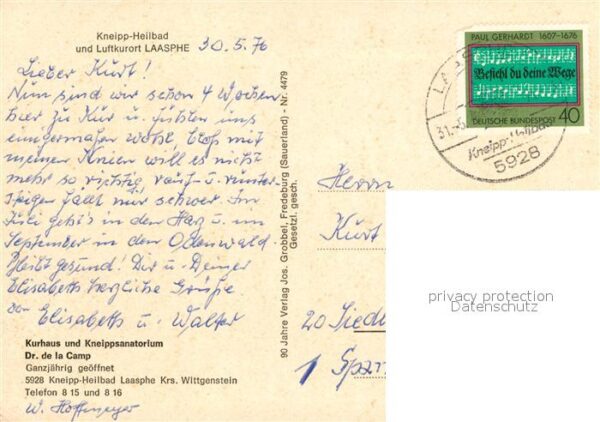 Kneipp-Heilbad
und Luftkurort LAASPHE 30.5.76
Lieber Kurt!
Nun sind wir schon 4 Wochen
hier zu Kur u. fühlen uns
einigermaßen wohl, bloß mit
meinen Knien will es nicht
mehr so richtig rauf- u. runter-
steigen fällt mir schwer. Im
Juli geht's in den Harz u. im
September in den Odenwald.
Bleibt gesund! Dir u. Deiner
Elisabeth herzliche Grüße
von Elisabeth u. Walter
Kurhaus und Kneippsanatorium
Dr. de la Camp
Ganzjährig geöffnet
5928 Kneipp-Heilbad Laasphe Krs. Wittgenstein
Telefon 8 15 und 8 16
W. Hoffmeyer
90 Jahre Verlag Jos. Grobbel, Fredeburg (Sauerland) - Nr. 4479
Gesetzl. gesch.
PAUL GERHARDT 1607-1676
Befiehl du deine Wege
DEUTSCHE BUNDESPOST 40
31.-5.
Kneipp-Heilbad
5928
Herrn
Kurt
20
1
privacy protection
Datenschutz